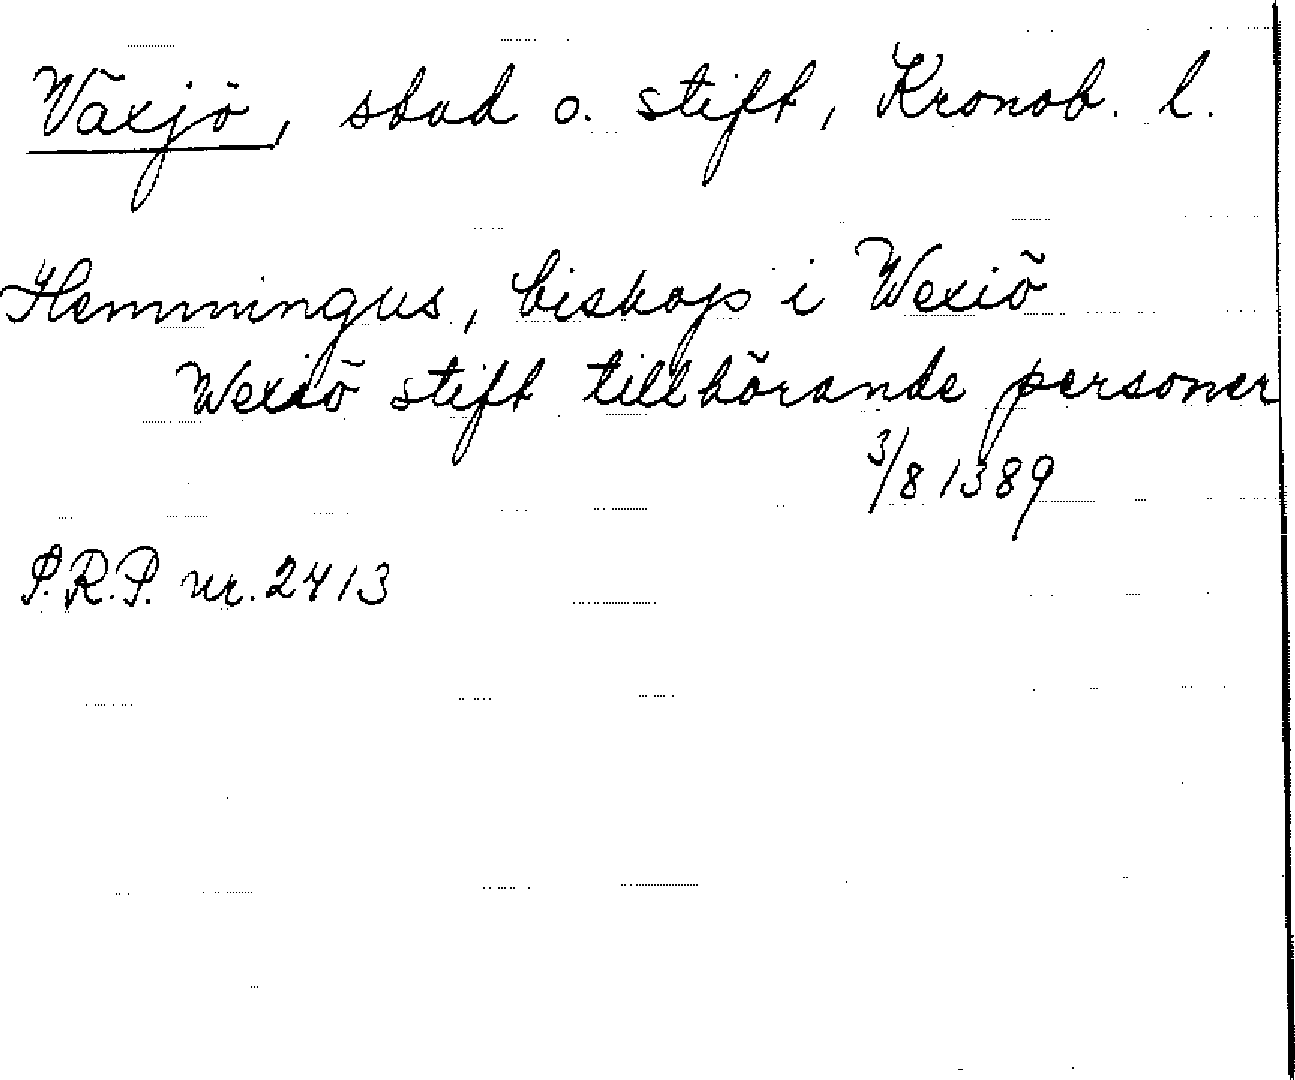 Växjö, stad o. stift, Kronob. l.
Hemmingus, biskop i Wexiö
Wexiö stift tillhörande personer
3/8 1389
P.R.P. nr. 2413